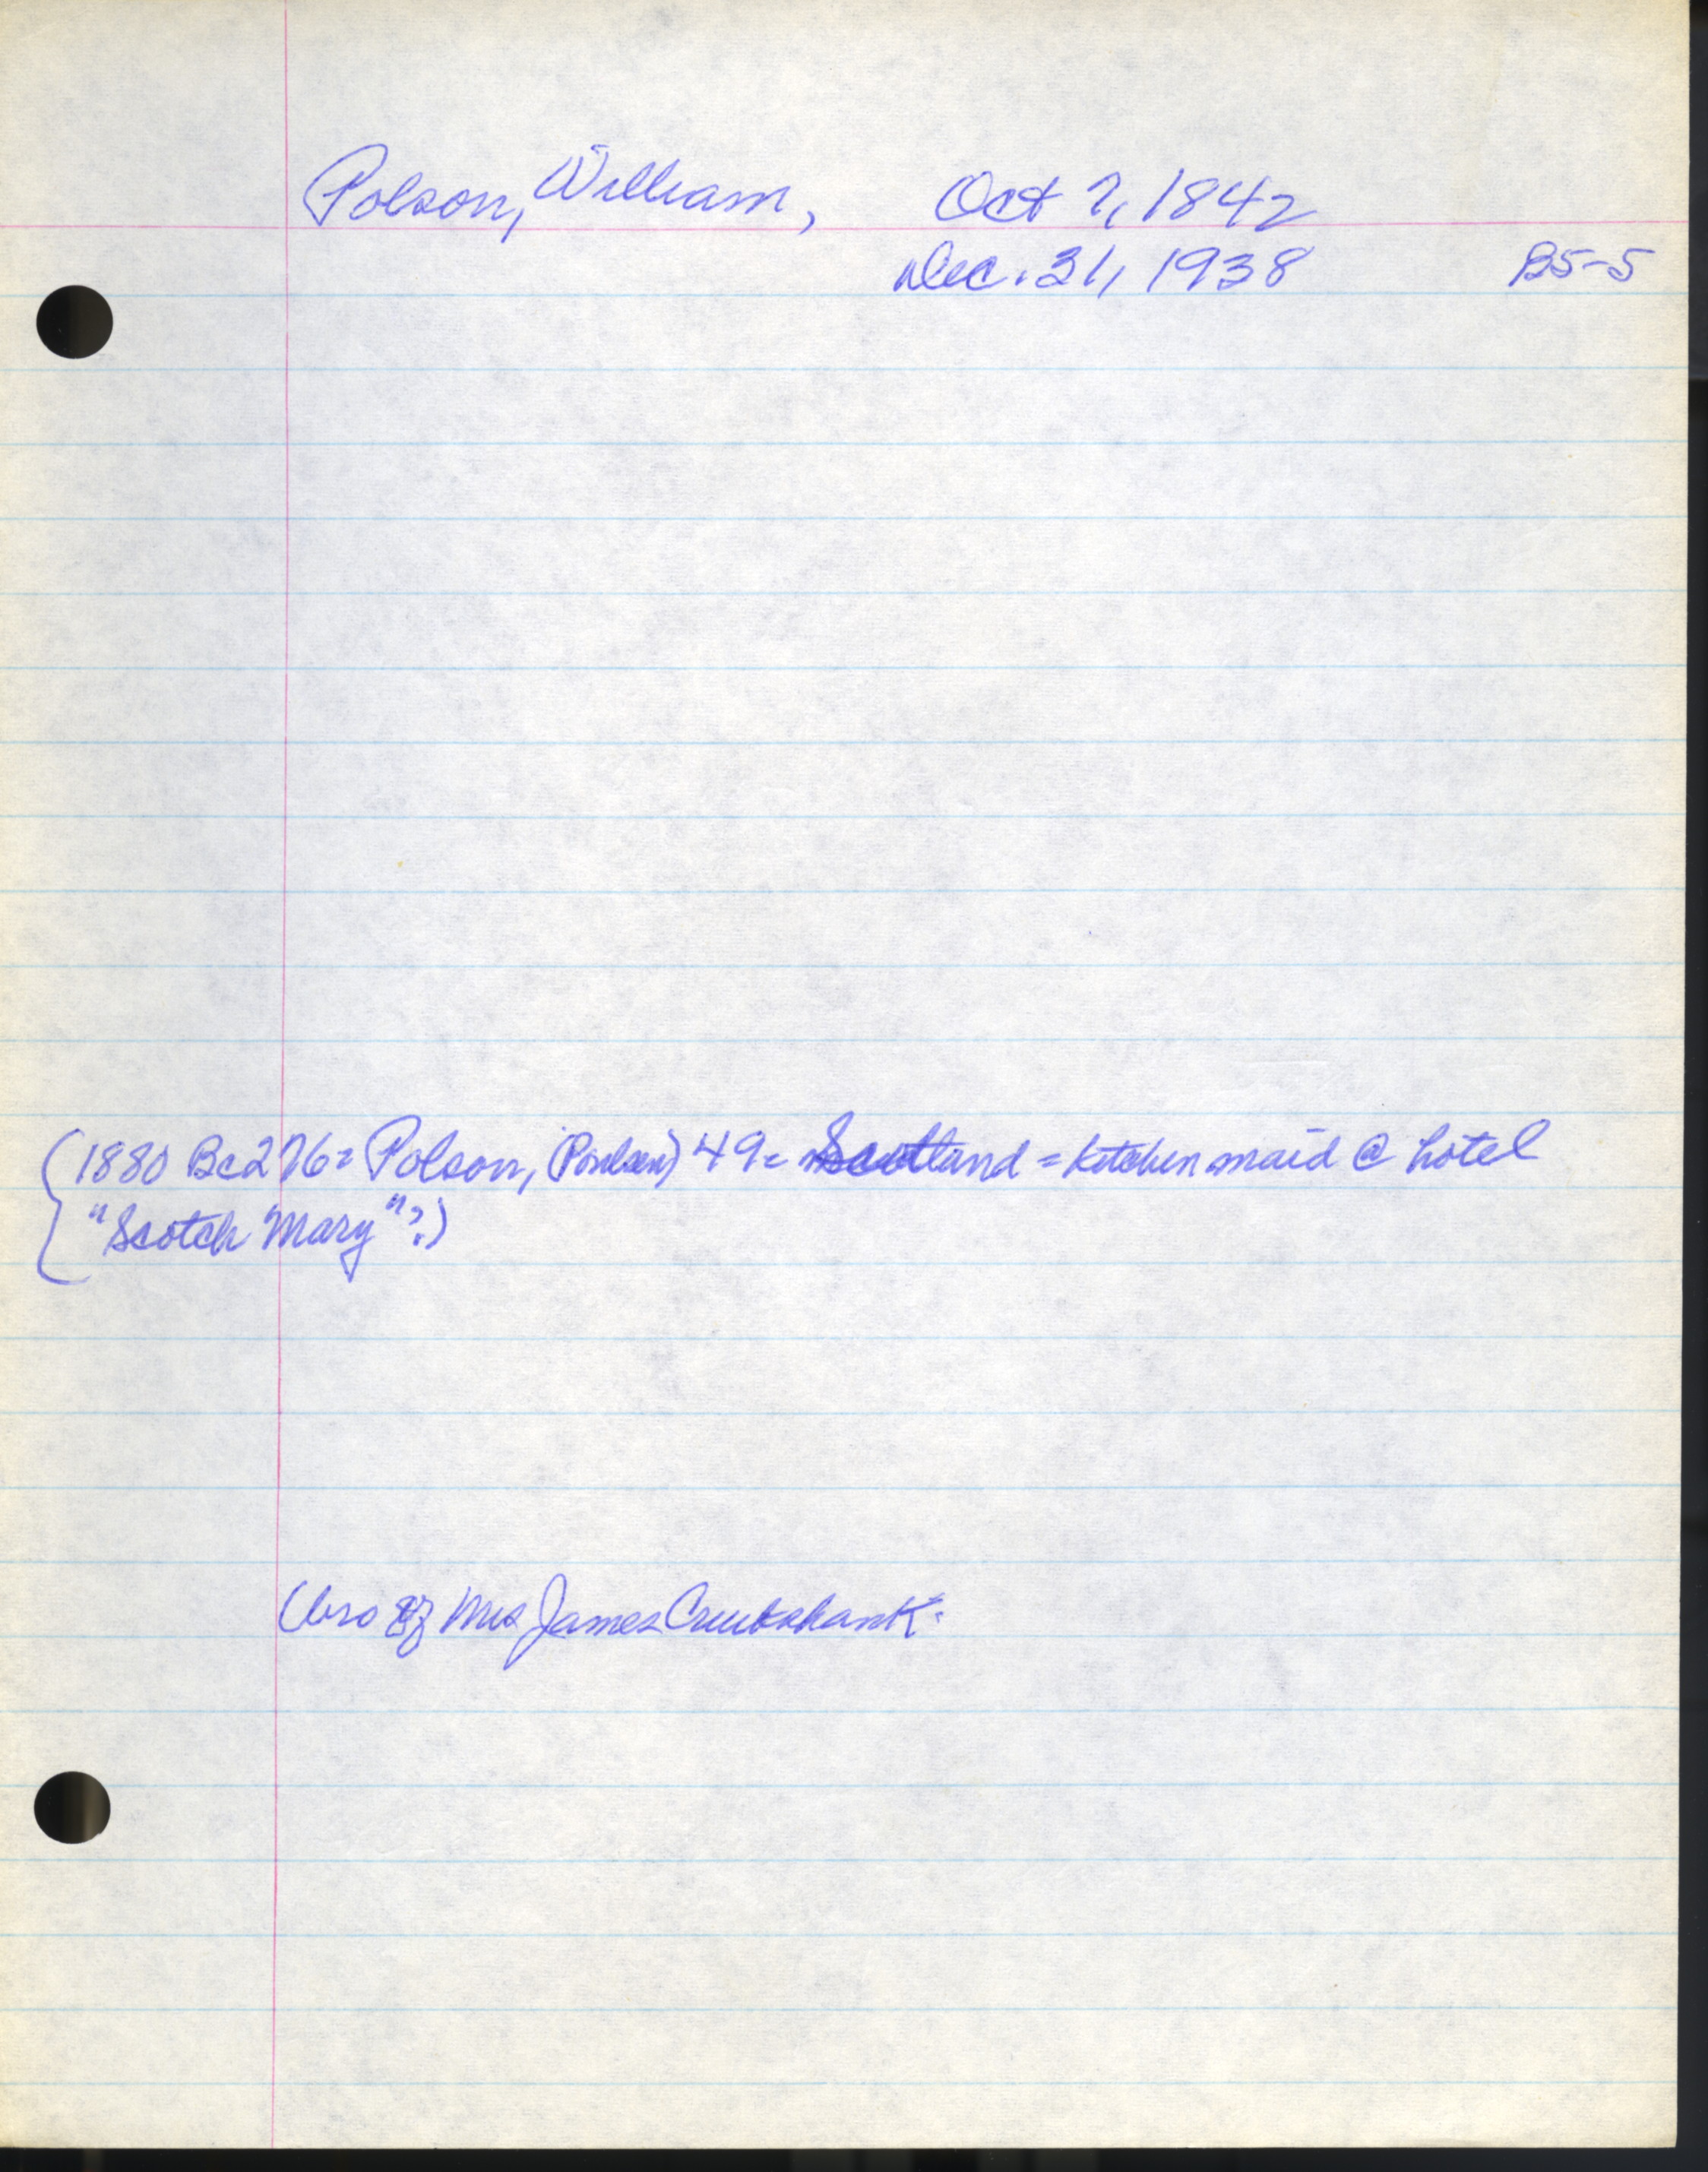 Polson, William, Oct 7, 1842
Dec. 31, 1938 B5-5
(1880 Bc276= Polson, (Poulsen) 49= Scotland = kitchen maid @ hotel
"Scotch Mary"?)
(bro of Mrs James Cruikshank.